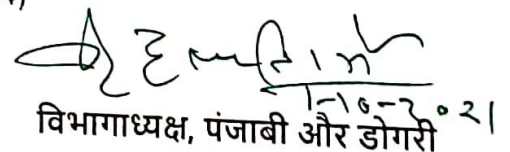 1-10-2021
विभागाध्यक्ष, पंजाबी और डोगरी